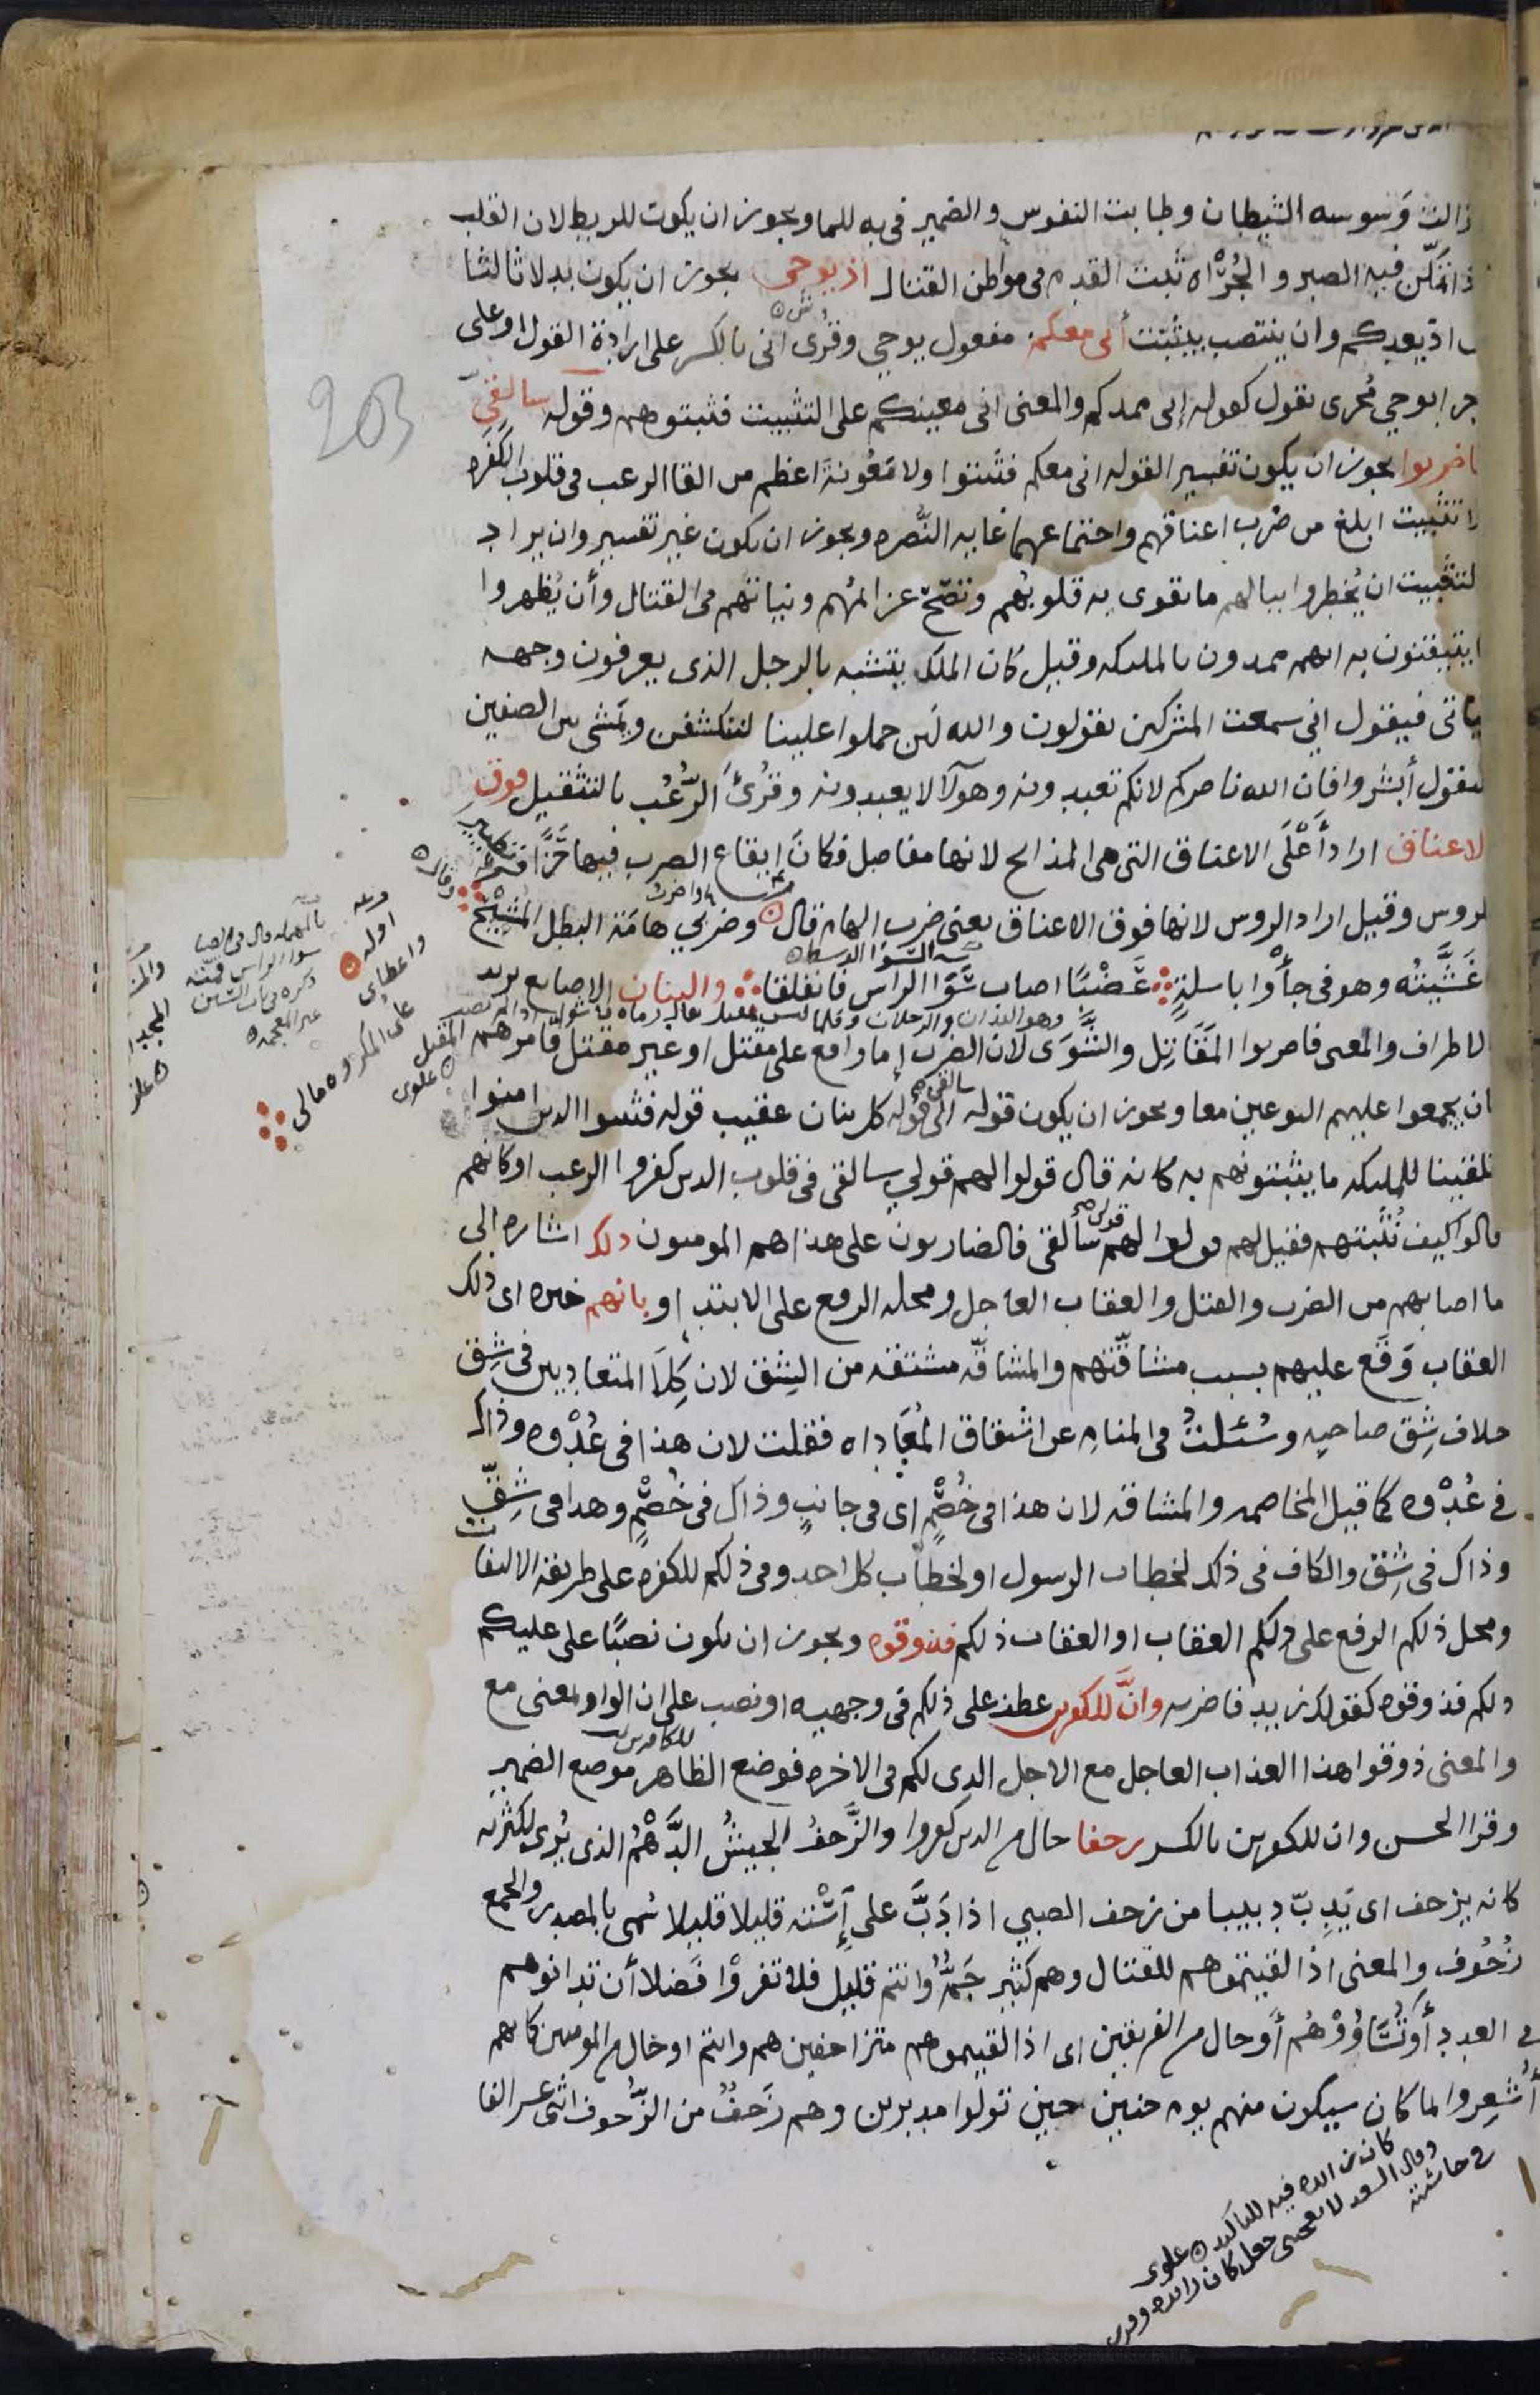 زالت وَسوسه الشيطان وطابت النفوس والضمير فى به للما ويجوز ان يكون للربط لان القلب
اذا تمكّن فيه الصبر والجُرْاه ثبتت القدم فى مواطن القتال اذ يوحى يجوز ان يكون بدلا ثالثا
اذ يعدكم وان ينتصب بيثبّت أنى معكم مفعول يوحي وقُرى انى بالكسر على ارادة القول او على
جرا يوحي مُجرى يقول كقوله إنى ممدكم والمعنى انى معينكم على التثبيت فثبتوهم وقوله سالقى
203
فاضربوا يجوز ان يكون تفسير القوله انى معكم فثبتوا ولا مَعُونةَ اعظم من القا الرعب فى قلوب الكفره
ولا تثبيت ابلغ من ضرب اعناقهم واجتماعهما غايه النُّصره ويجوز ان يكون غير تفسير وان يراد
بالتثبيت ان يُخطروا ببالهم ما تقوى به قلوبُهم وتصّحّ عزائمُهم ونياتهم فى القتال وأن يُظهروا
ما يتيقنون به انهم ممدون بالمليكه وقيل كان الملك يتشبه بالرجل الذى يعرفون وجهه
فياتى فيقول انى سمعت المشركين يقولون والله لَئِن حملوا علينا لننكشفن ويَمشى بين الصفين
فيقول أبشروا فان الله ناصركم لانكم تعبدونه وهولآ لا يعبدونه وقُرئَ الرُّعُب بالتثقيل فوق
الاعناق اراد أَعْلَى الاعناق التى هى المذابح لانها مفاصل فكانَ إيقاع الضرب فيها حَزًّا وتطييرا
للروس وقيل اراد الروس لانها فوق الاعناق يعنى ضرب الهام قال وضربي هامَةَ البطل المُشِيْحِ
غَشَّيتُه وهو فى جأْوا باسلةٍ عَضْبًا اصاب سَوَا الراس فانفلقا والبنان الاصابع يريد
الاطراف والمعنى فاضربوا المَقَاتِل والشَّوَى لان الضرب إما واقع على مقتل او غير مقتل فامرهم
ان يجمعوا عليهم النوعين معا ويجوز ان يكون قوله سالقى الى قوله كل بنان عقيب قوله فثبتوا الذين امنوا
تلقينا للمليكه ما يثبتونهم به كانه قال قولوا لهم قولي سالقى فى قلوب الذين كفروا الرعب او كانهم
قالوا كيف نُثَبتهم فقيل لهم قولوا لهم قولى سألقى فالضاربون على هذا هم المومنون ذلك اشاره الى
ما اصابهم من الضرب والقتل والعقاب العاجل ومحله الرفع على الابتدا وبانهم خبره اى ذلك
العقاب وَقَع عليهم بسبب مشاقّتهم والمشاقّه مشتقه من الشِق لان كِلاَ المتعاديين فى شِق
خلاف شِق صاحبه وسُئلتُ فى المنام عن اشتقاق المُعَاداه فقلت لان هذا فى عُدْوه وذاك
فى عُدْوه كما قيل المخاصمه والمشاقه لان هذا فى خُصْمٍ اى فى جانبٍ وذاك فى خُصْمٍ وهذا فى شِقّ
وذاك فى شِق والكاف فى ذلك لخطاب الرسول او لخطاب كل احد وفى ذلكم للكفره على طريقه الالتفات
ومحل ذلكم الرفع على ذلكم العقاب او العقاب ذلكم فذوقوه ويجوز ان يكون نصبًا على عليكم
ذلكم فذوقوه كقولك زيد فاضربه وانَّ للكفرين عطف على ذلكم فى وجهيه او نصب على ان الواو بمعنى مع
والمعنى ذوقوا هذا العذاب العاجل مع الاجل الذى لكم فى الاخره فوضع الظاهر موضع الضمير
وقرا الحسن وان للكفرين بالكسر زحفا حال من الذين كفروا والزَّحفُ الجيشُ الدَّهْمُ الذى يُرى لكثرته
كانه يزحف اى يَدِبّ دبيبا من زحف الصبي اذا دَبَّ على إِسْته قليلا قليلا سُمى بالمصدر والجمع
زُحُوف والمعنى اذا لقيتموهم للقتال وهم كثير جَمٌّ وانتم قليل فلا تفروْا فَضلا أن تدانوهم
فى العدد أوتُسَاوُوْهُم أو حال من الفريقين اى اذا لقيتموهم متزاحفين هم وانتم او حال من المومنين كانهم
أُشعِروا بما كان سيكون منهم يوم حنين حين تولوا مدبرين وهم زَحفٌ من الزُّحوف اثنى عسر الفا
كان زائده فيه للتاكيد علوى
وقال السعد لا معنى لجعل كان زائده
فى حاشيته
واعطاى
على المكروه مالى